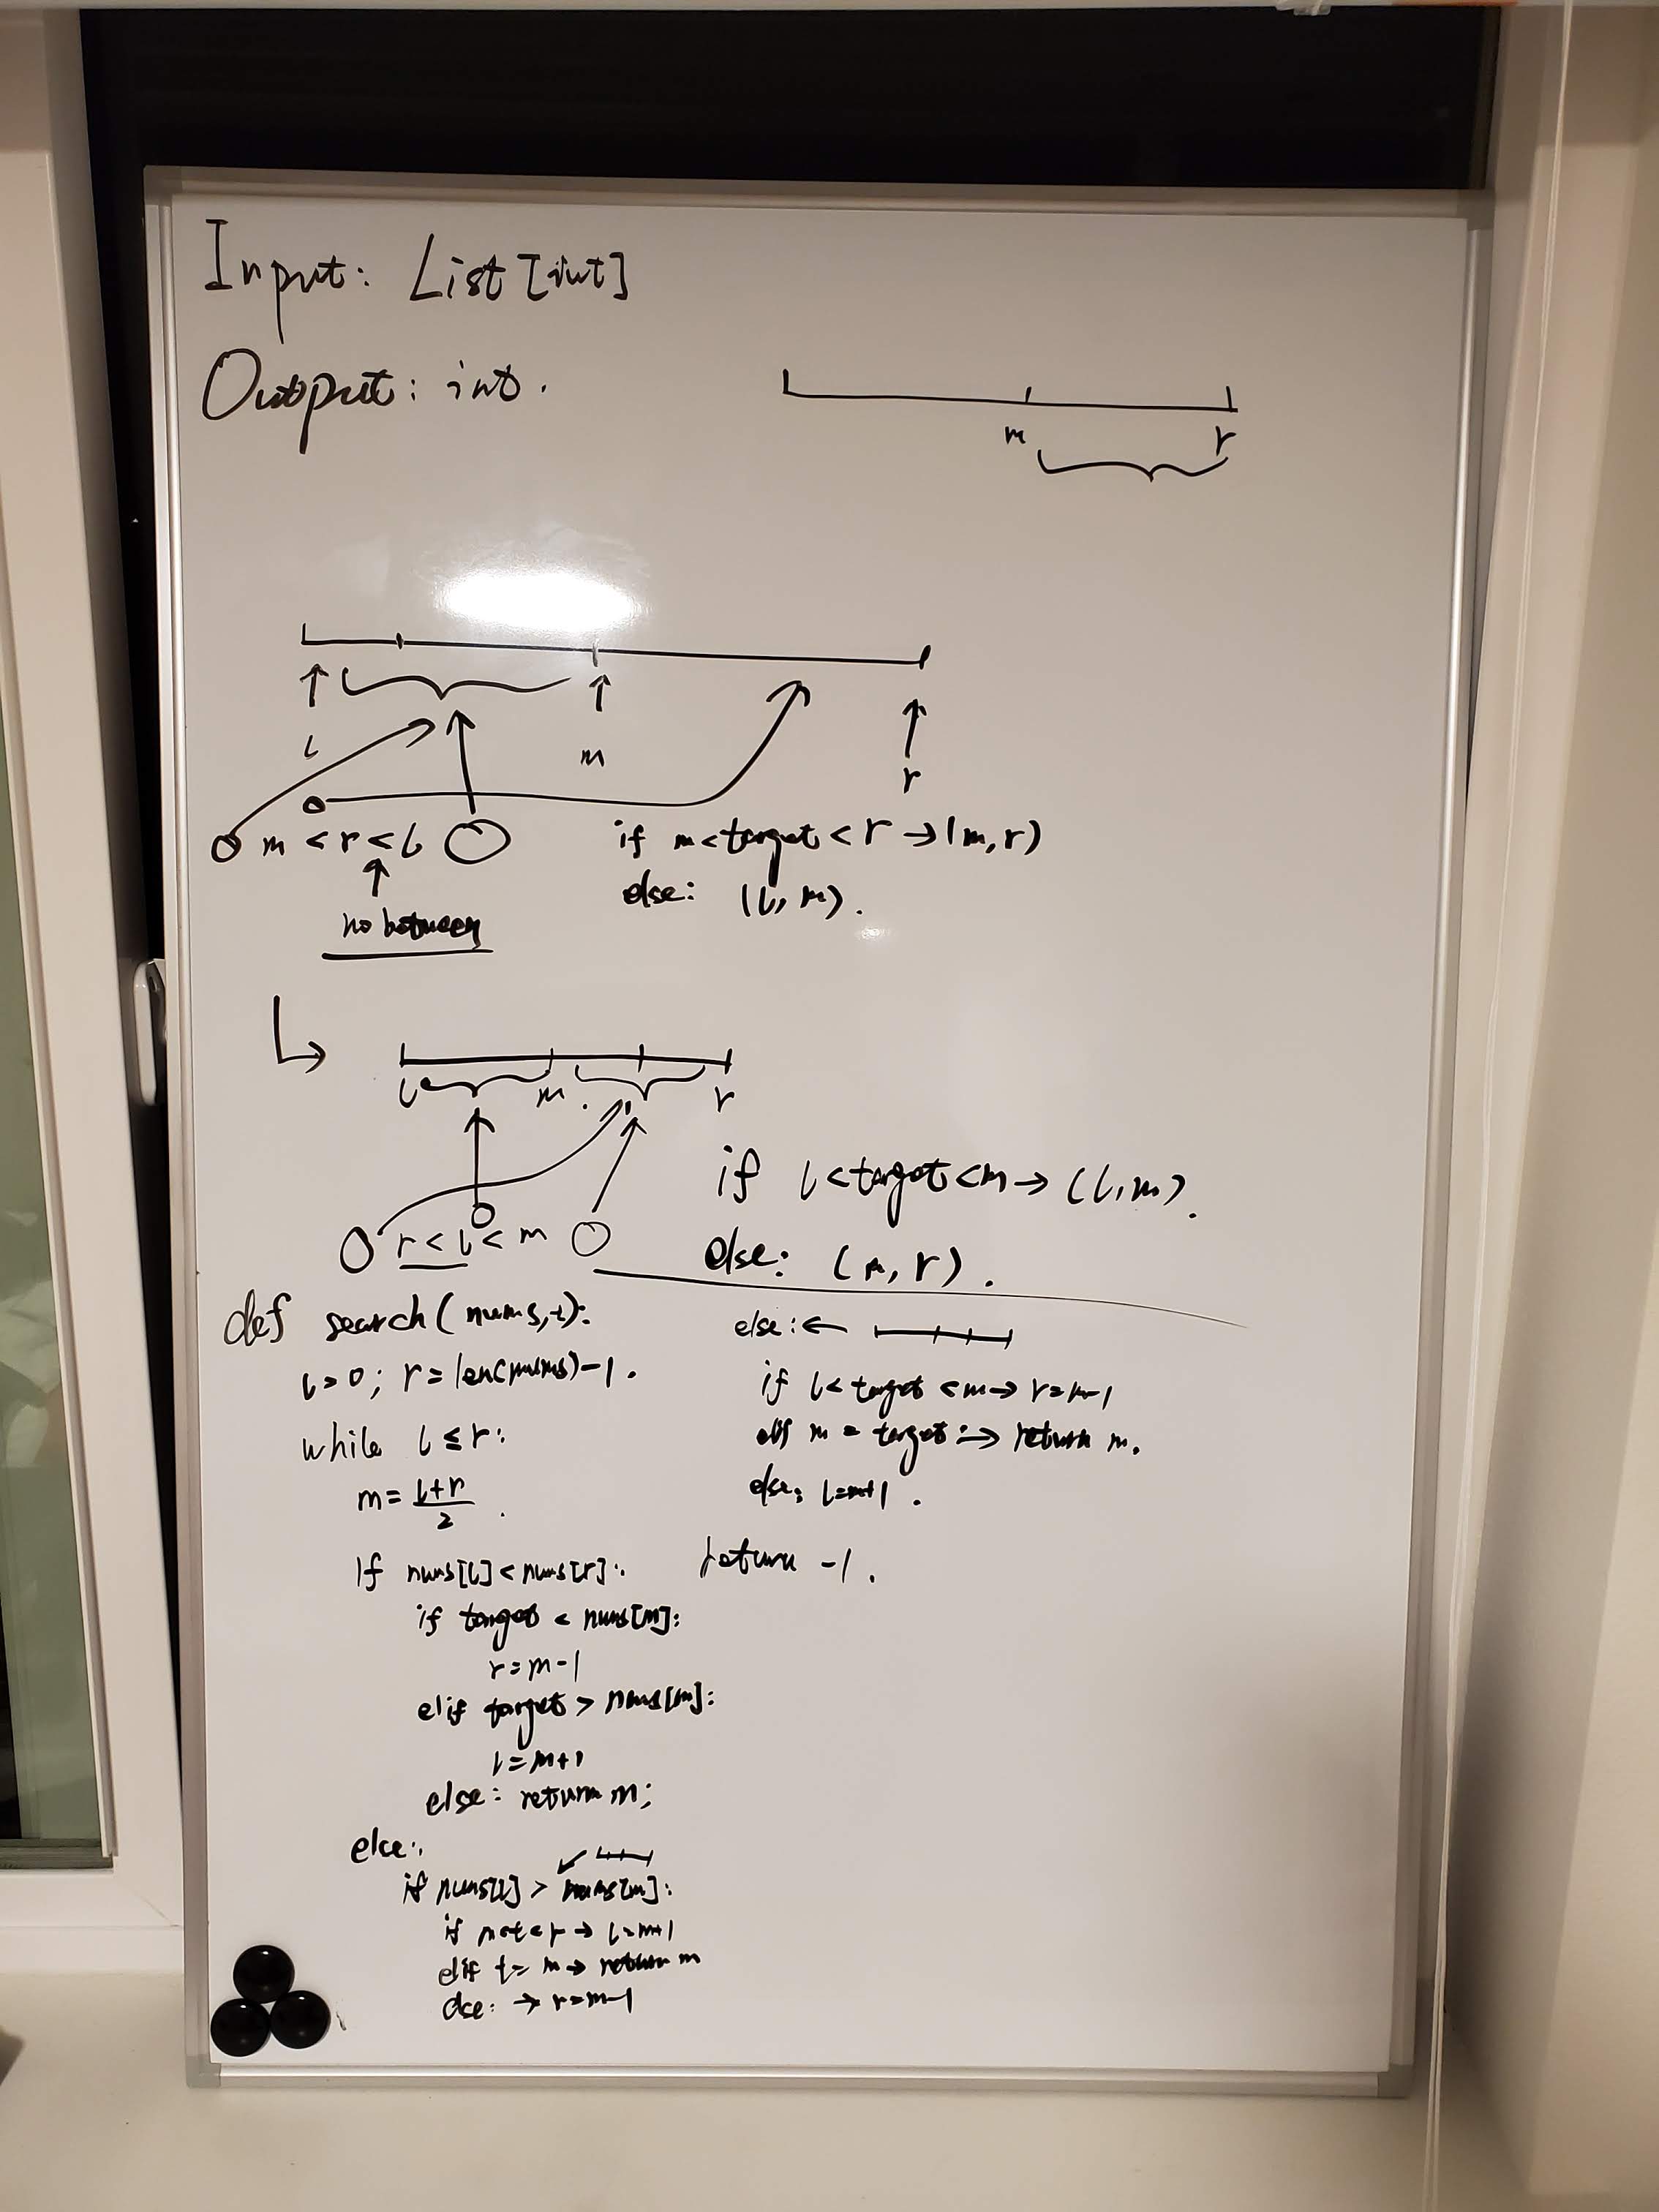 Input: List[int]
Output: int.
m r
l m r
m < r < l
no between
if m<target<r → (m,r)
else: (l, m).
l m. r
r < l < m
if l<target<m → (l,m).
else: (m, r).
def search(nums,t):
l=0; r=len(nums)-1.
while l ≤ r:
m = (l+r)/2.
if nums[l] < nums[r]:
if target < nums[m]:
r=m-1
elif target > nums[m]:
l=m+1
else: return m;
else:
if nums[l] > nums[m]:
if m<t<r → l=m+1
elif t= m → return m
else: → r=m-1
else: ←
if l< target <m → r=m-1
elif m = target: → return m.
else: l=m+1.
return -1.